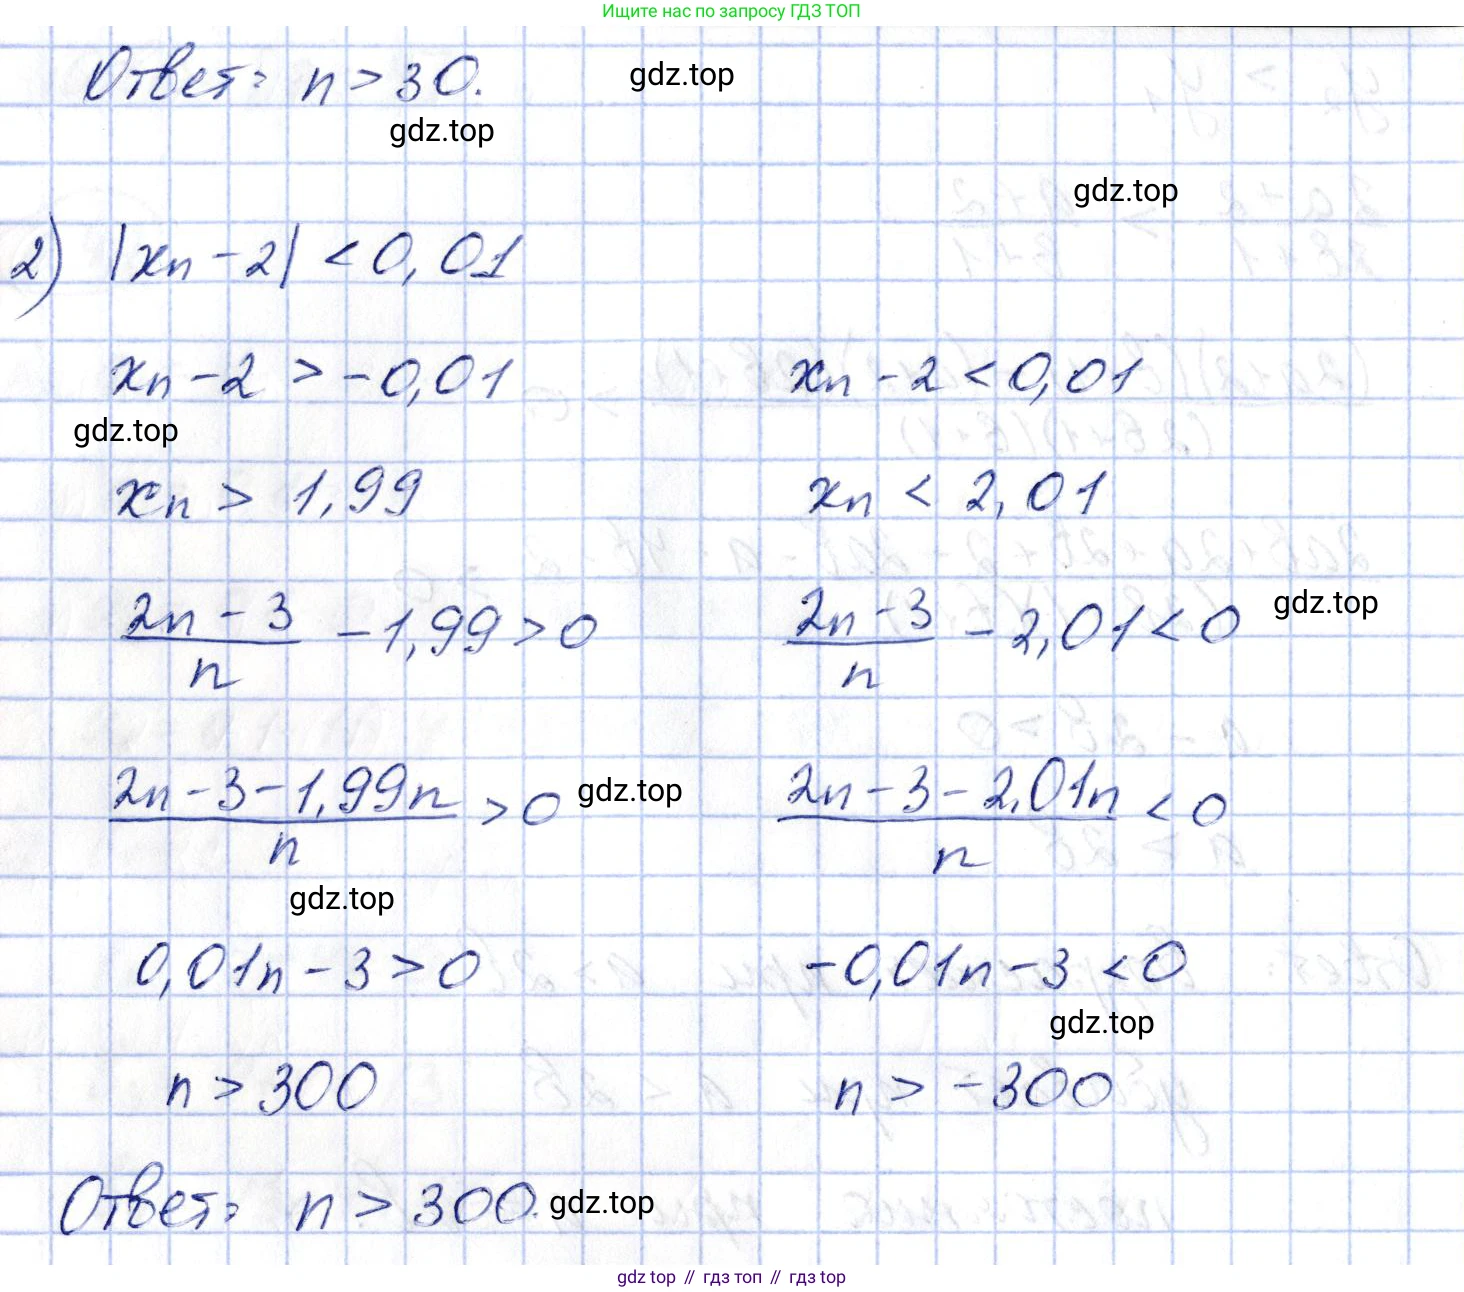 Ищите нас по запросу ГДЗ ТОП
Ответ: n > 30.
gdz.top
gdz.top
gdz.top
2) |xn - 2| < 0,01
xn - 2 > -0,01 xn - 2 < 0,01
gdz.top
xn > 1,99 xn < 2,01
2n - 3 / n - 1,99 > 0 2n - 3 / n - 2,01 < 0 gdz.top
2n - 3 - 1,99n / n > 0 gdz.top 2n - 3 - 2,01n / n < 0
gdz.top
0,01n - 3 > 0 -0,01n - 3 < 0
gdz.top
n > 300 n > -300
Ответ: n > 300. gdz.top
gdz top // гдз топ // гдз top